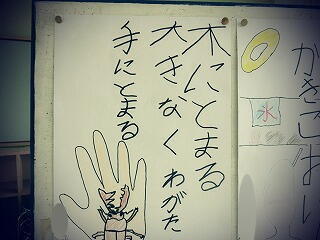 木にとまる
大きなくわがた
手にとまる
かきごおり
氷